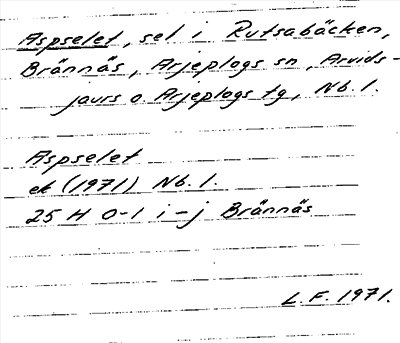 Aspselet, sel i Rutsabäcken,
Brännäs, Arjeplogs sn, Arvids-
jaurs o. Arjeplogs tg, Nb. l.
Aspselet
ek (1971) Nb. l.
25 H 0-1 i-j Brännäs
L. F. 1971.